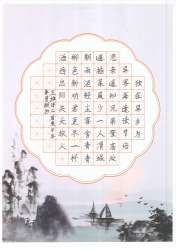 独在异乡为
异客每逢佳节倍
思亲遥知兄弟登高处
遍插茱萸少一人渭城
朝雨浥轻尘客舍青青
柳色新劝君更尽一杯
酒西出阳关无故人